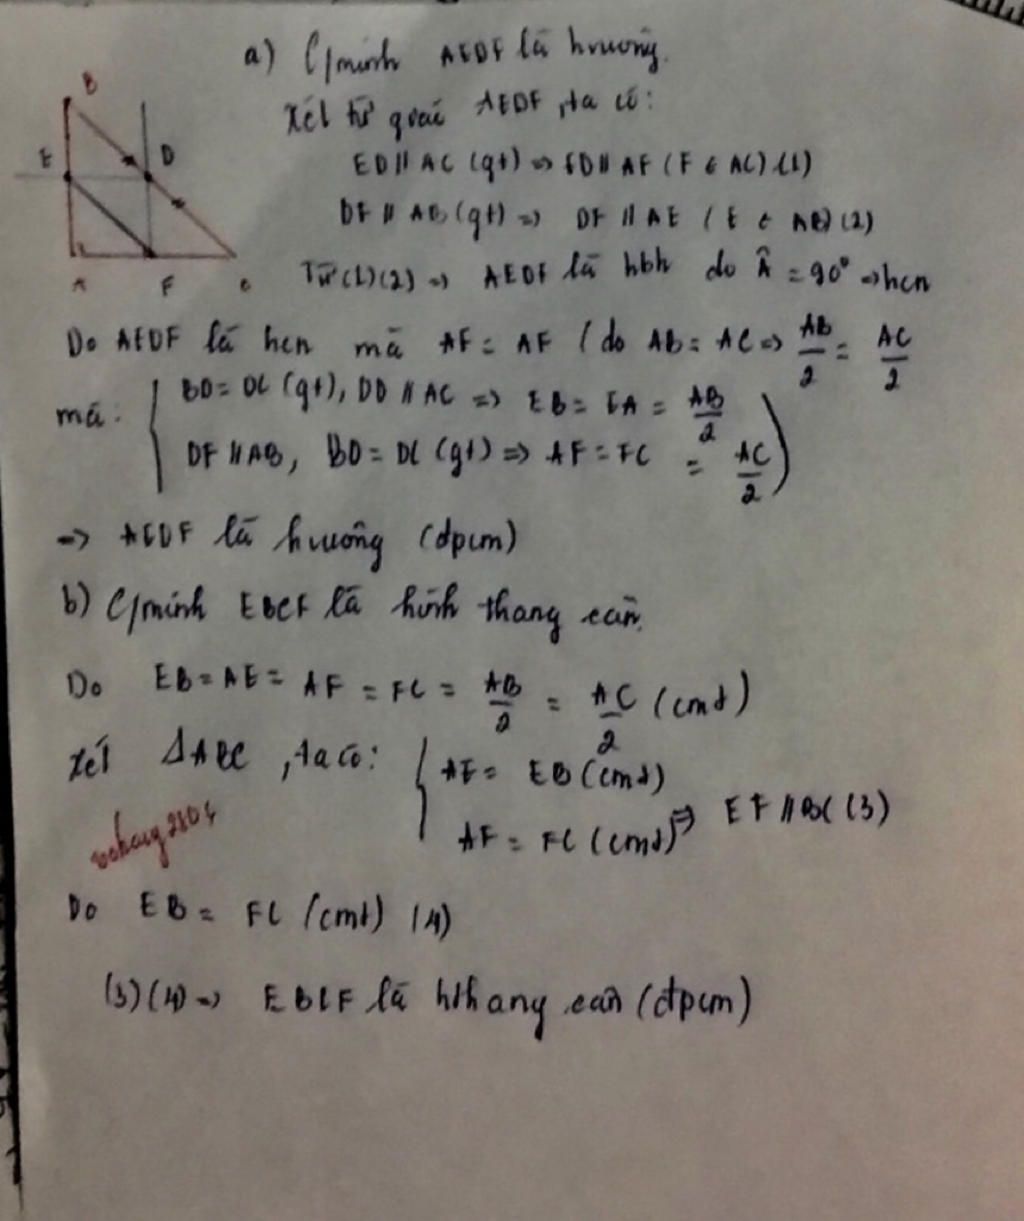 a) C/minh AEDF là hvuông.
Xét tứ giác AEDF, ta có:
ED // AC (gt) => ED // AF (F ∈ AC) (1)
DF // AB (gt) => DF // AE (E ∈ AB) (2)
Từ (1)(2) => AEDF là hbh do Â = 90° => hcn
B
E
D
A
F
C
Do AEDF là hcn mà AF = AF (do AB = AC => AB/2 = AC/2
mà: { BD = DC (gt), DD // AC => EB = EA = AB/2
DF // AB, BD = DC (gt) => AF = FC = AC/2 )
=> AEDF là hvuông (đpcm)
b) C/minh EBCF là hình thang cân.
Do EB = AE = AF = FC = AB/2 = AC/2 (cmt)
Xét ΔABC, ta có: { AE = EB (cmt)
AF = FC (cmt) => EF // BC (3)
Do EB = FC (cmt) (4)
(3)(4) => EBCF là hthang cân (đpcm)